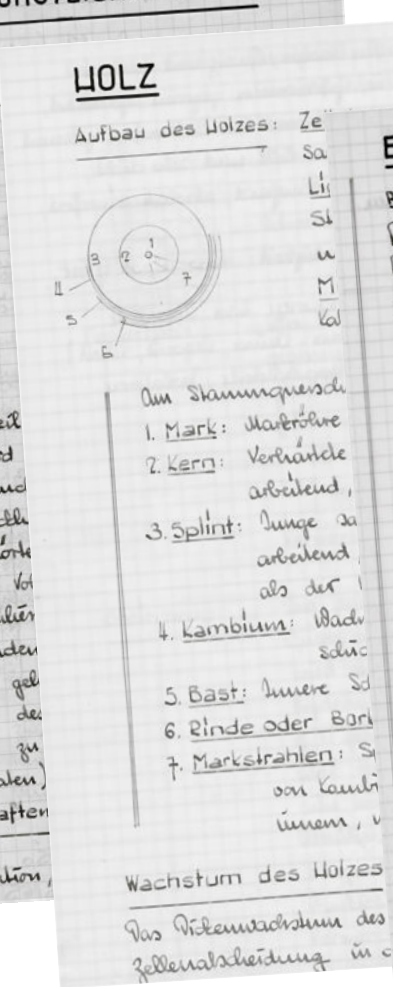 HOLZ
Aufbau des Holzes: Ze
Sa
Li
St
u
M
Kal
1
2
3
7
4
5
6
Am Stammquersch
1. Mark: Markröhre
2. Kern: Verhärtete
arbeitend,
3. Splint: Junge Sa
arbeitend
als der
4. Kambium: Wach
schic
5. Bast: Innere Sc
6. Rinde oder Bork
7. Markstrahlen: S
von Kambi
innern, v
Wachstum des Holzes
Das Dickenwachstum des
Zellenabscheidung in
eil
d
örte
Vol
den
gel
des
zu
alen)
aften
ation,
E